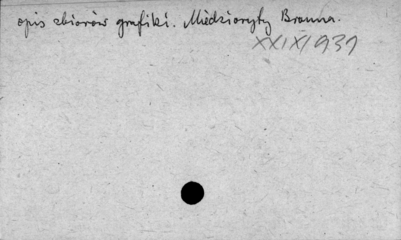 opis zbiorów grafiki. Miedzioryty Brauna.
XX/XI/1931